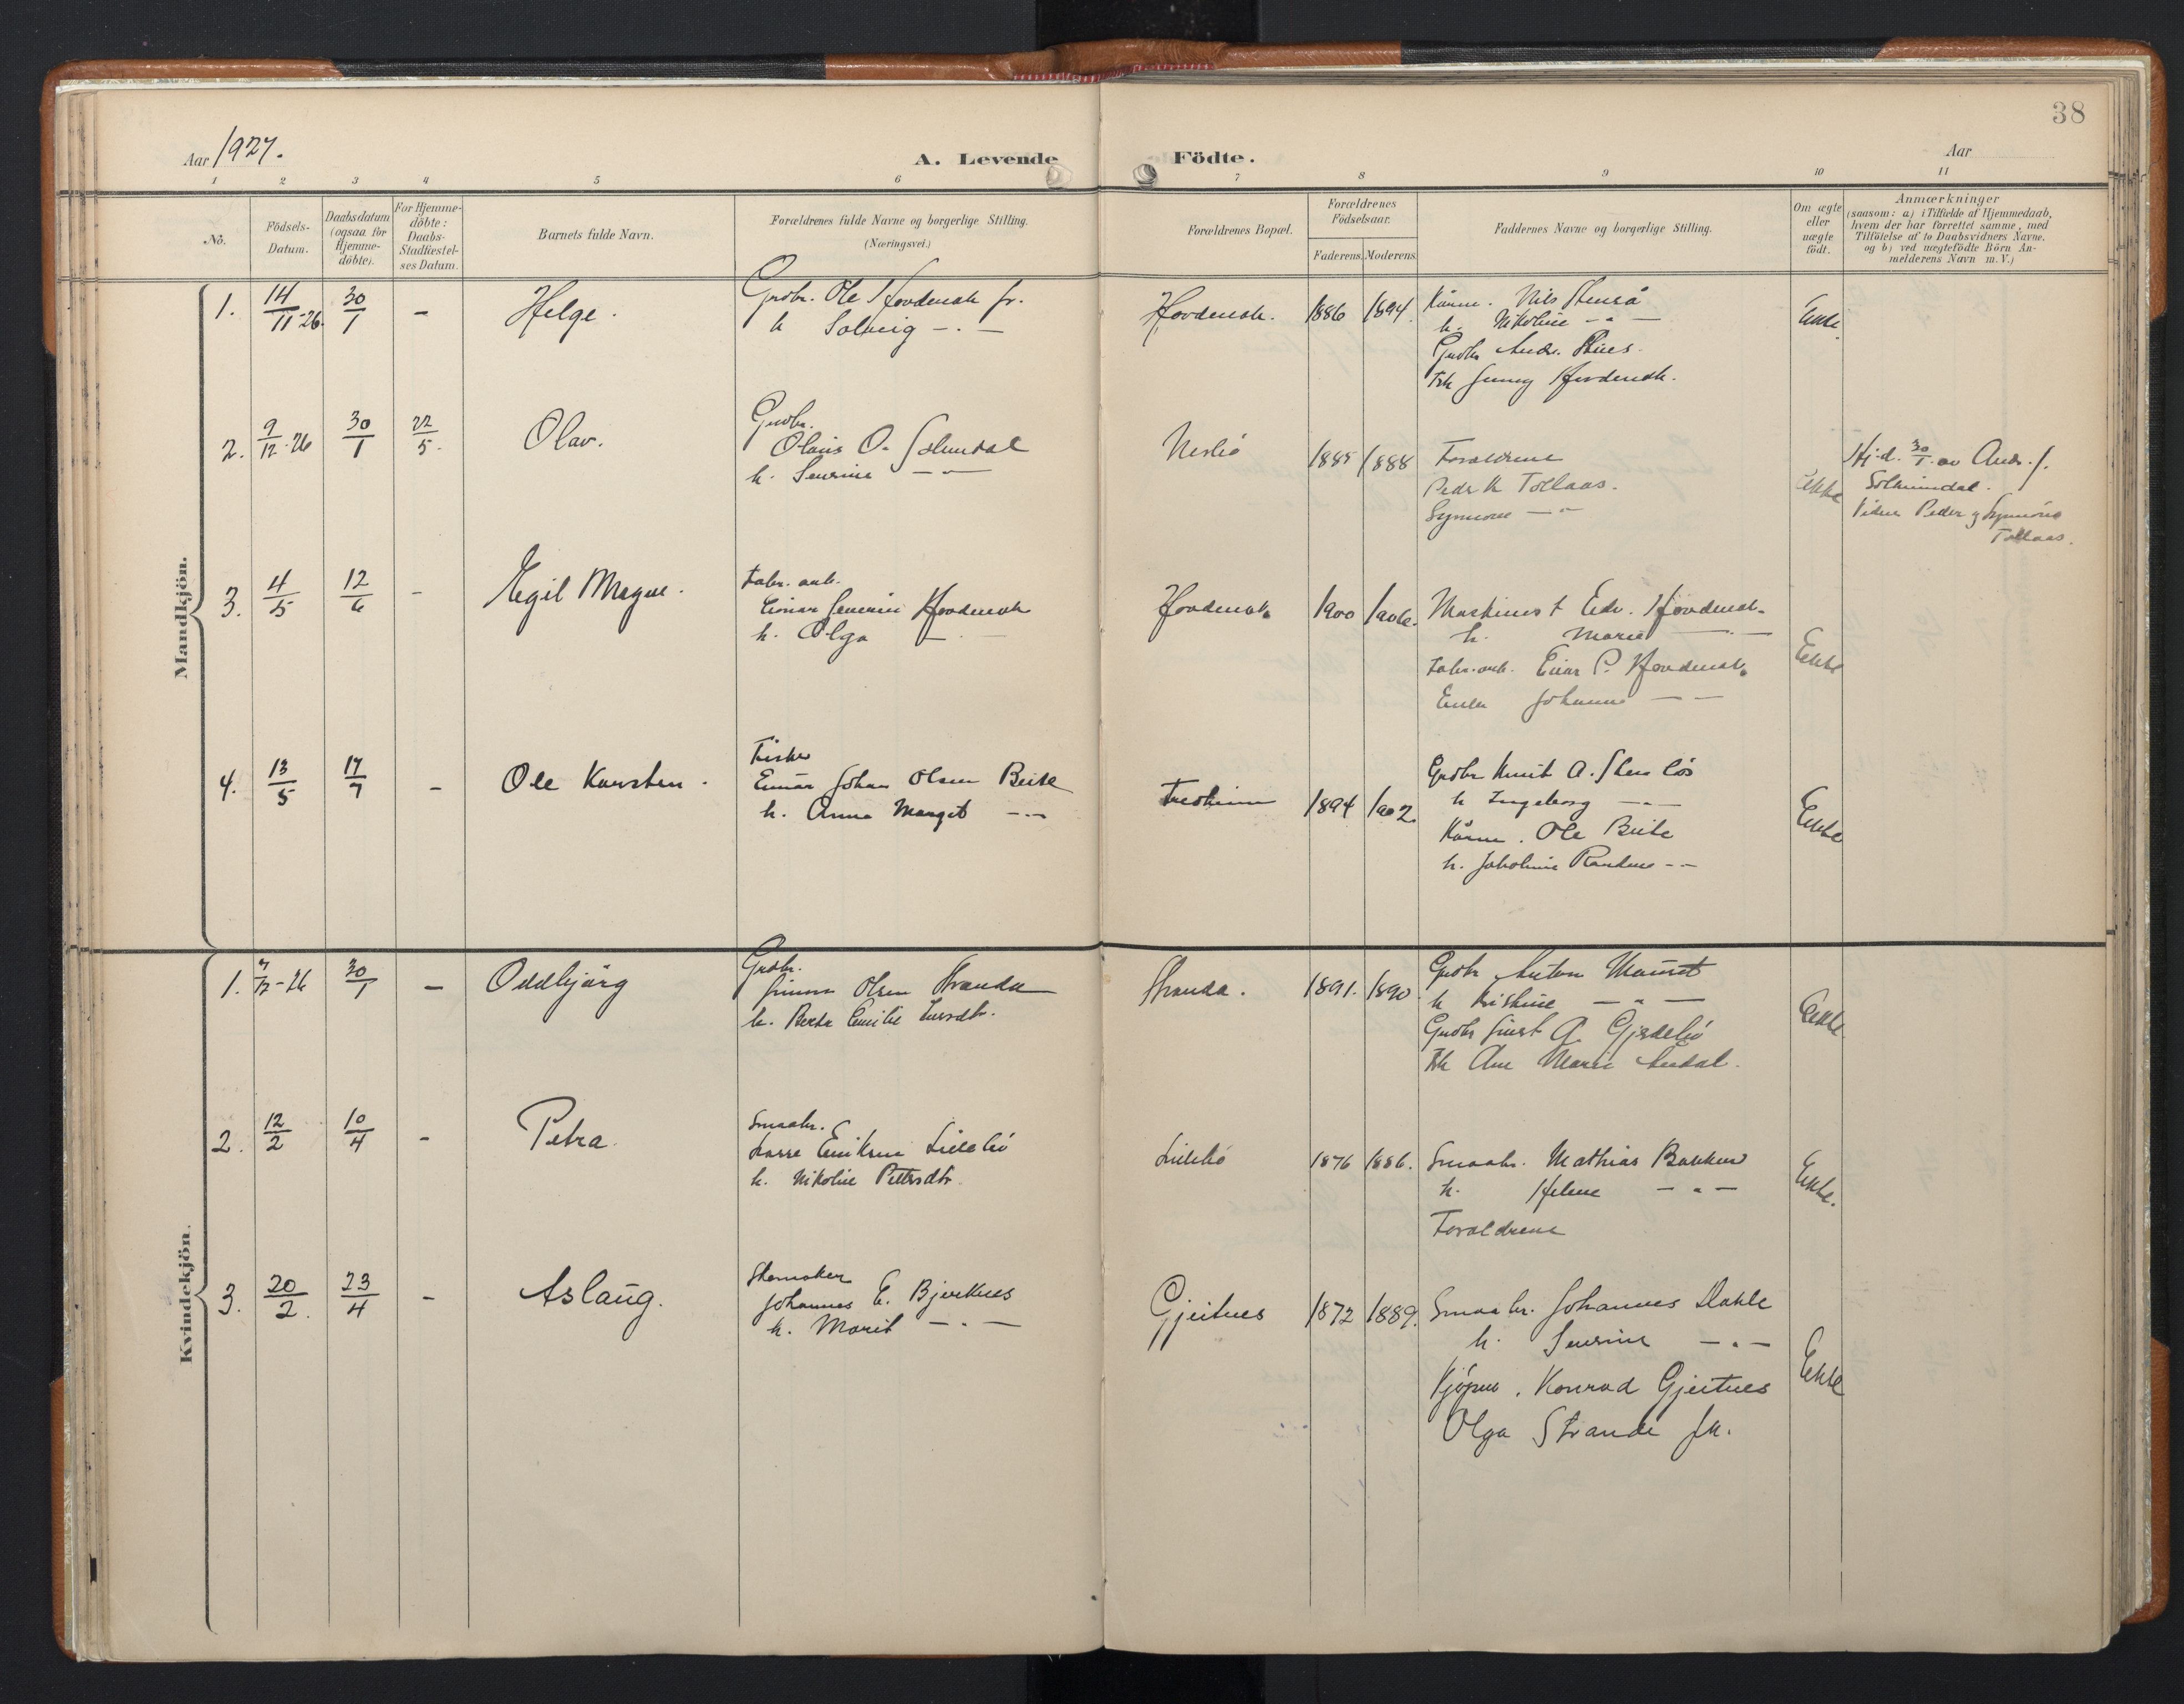 38
Aar 1927.
A. Levende Födte.
Aar
1 2 3 4 5 6 7 8 9 10 11
No.
Födsels-
Datum.
Daabsdatum
(ogsaa for
Hjemme-
döbte).
For Hjemme-
döbte:
Daabs-
Stadfæstel-
ses Datum.
Barnets fulde Navn.
Forældrenes fulde Navne og borgerlige Stilling.
(Næringsvei.)
Forældrenes Bopæl.
Forældrenes
Födselsaar.
Faderens. Moderens.
Faddernes Navne og borgerlige Stilling.
Om ægte
eller
uægte
födt.
Anmærkninger
(saasom: a) i Tilfælde af Hjemmedaab,
hvem der har forrettet samme, med
Tilföielse af to Daabsvidners Navne,
og b) ved uægtefödte Börn An-
melderens Navn m. V.)
Mandkjön.
1. 14/11-26. 30/1 - Helge.
Grdbr. Ole Hovdenak jr.
h Solveig -.-
Hovdenak. 1886 1894.
Kårm. Nils
h. Nikoline -"-
Grdbr Andr.
Frk Jenny Hovdenak.
Ekte.
2. 9/12-26 30/1 22/5. Olav.
Grdbr.
Olaus O. Solemdal
h. Severine -"-
Neslió 1885 1888
Foreldrene
Peder K Tollaas.
Synnøve -"-
Ekte
Hj.d. 30/1 av Andr. J.
Solemdal.
Vidner Peder og Synnöve
Tollaas.
3. 4/5 12/6 - Egil Magne.
Fabr. arb.
Einar Severin Hovdenak
h. Olga -.-
Hovdenak 1900 1906.
Maskinist Edv. Hovdenak
h. Marie -.-
Fabr. arb. Einar P. Hovdenak
Enke Johanne -"-
Ekte
4. 13/5 17/7 - Ole Karsten.
Fisker
Einar Johan Olsen Beite
h. Anna Margit -"-
1894 1902.
Grdbr Knut A.
h Ingeborg -"-
Kårm. Ole Beite
h. Jakobine Randine -"-
Ekte
Kvindekjön.
1. 7/12-26 30/1 - Oddbjörg
Grdbr.
Gunnar Olsen Stranda
h. Berte Emilie Iversdtr.
Stranda. 1891. 1890.
Grdbr Anton
h Kristine -"-
Grdbr A. Gjerdelió
Frk Ane Marie
Ekte
2. 12/2 10/4 - Petra.
Smaabr.
Lasse Eriksen Lillelió
h. Nikoline Pettersdtr.
Lillelió 1876 1886.
Smaabr. Mathias Bakken
h. Helene -"-
Foreldrene
Ekte.
3. 20/2. 23/4 - Aslaug.
Skomaker
Johannes E. Bjerknes
h. Marit -.-
Gjeitnes 1872 1889.
Smaabr. Johannes Dahle
h. Severine -.-
Kjöpm. Konrad Gjeitnes
Olga Strande fr.
Ekte